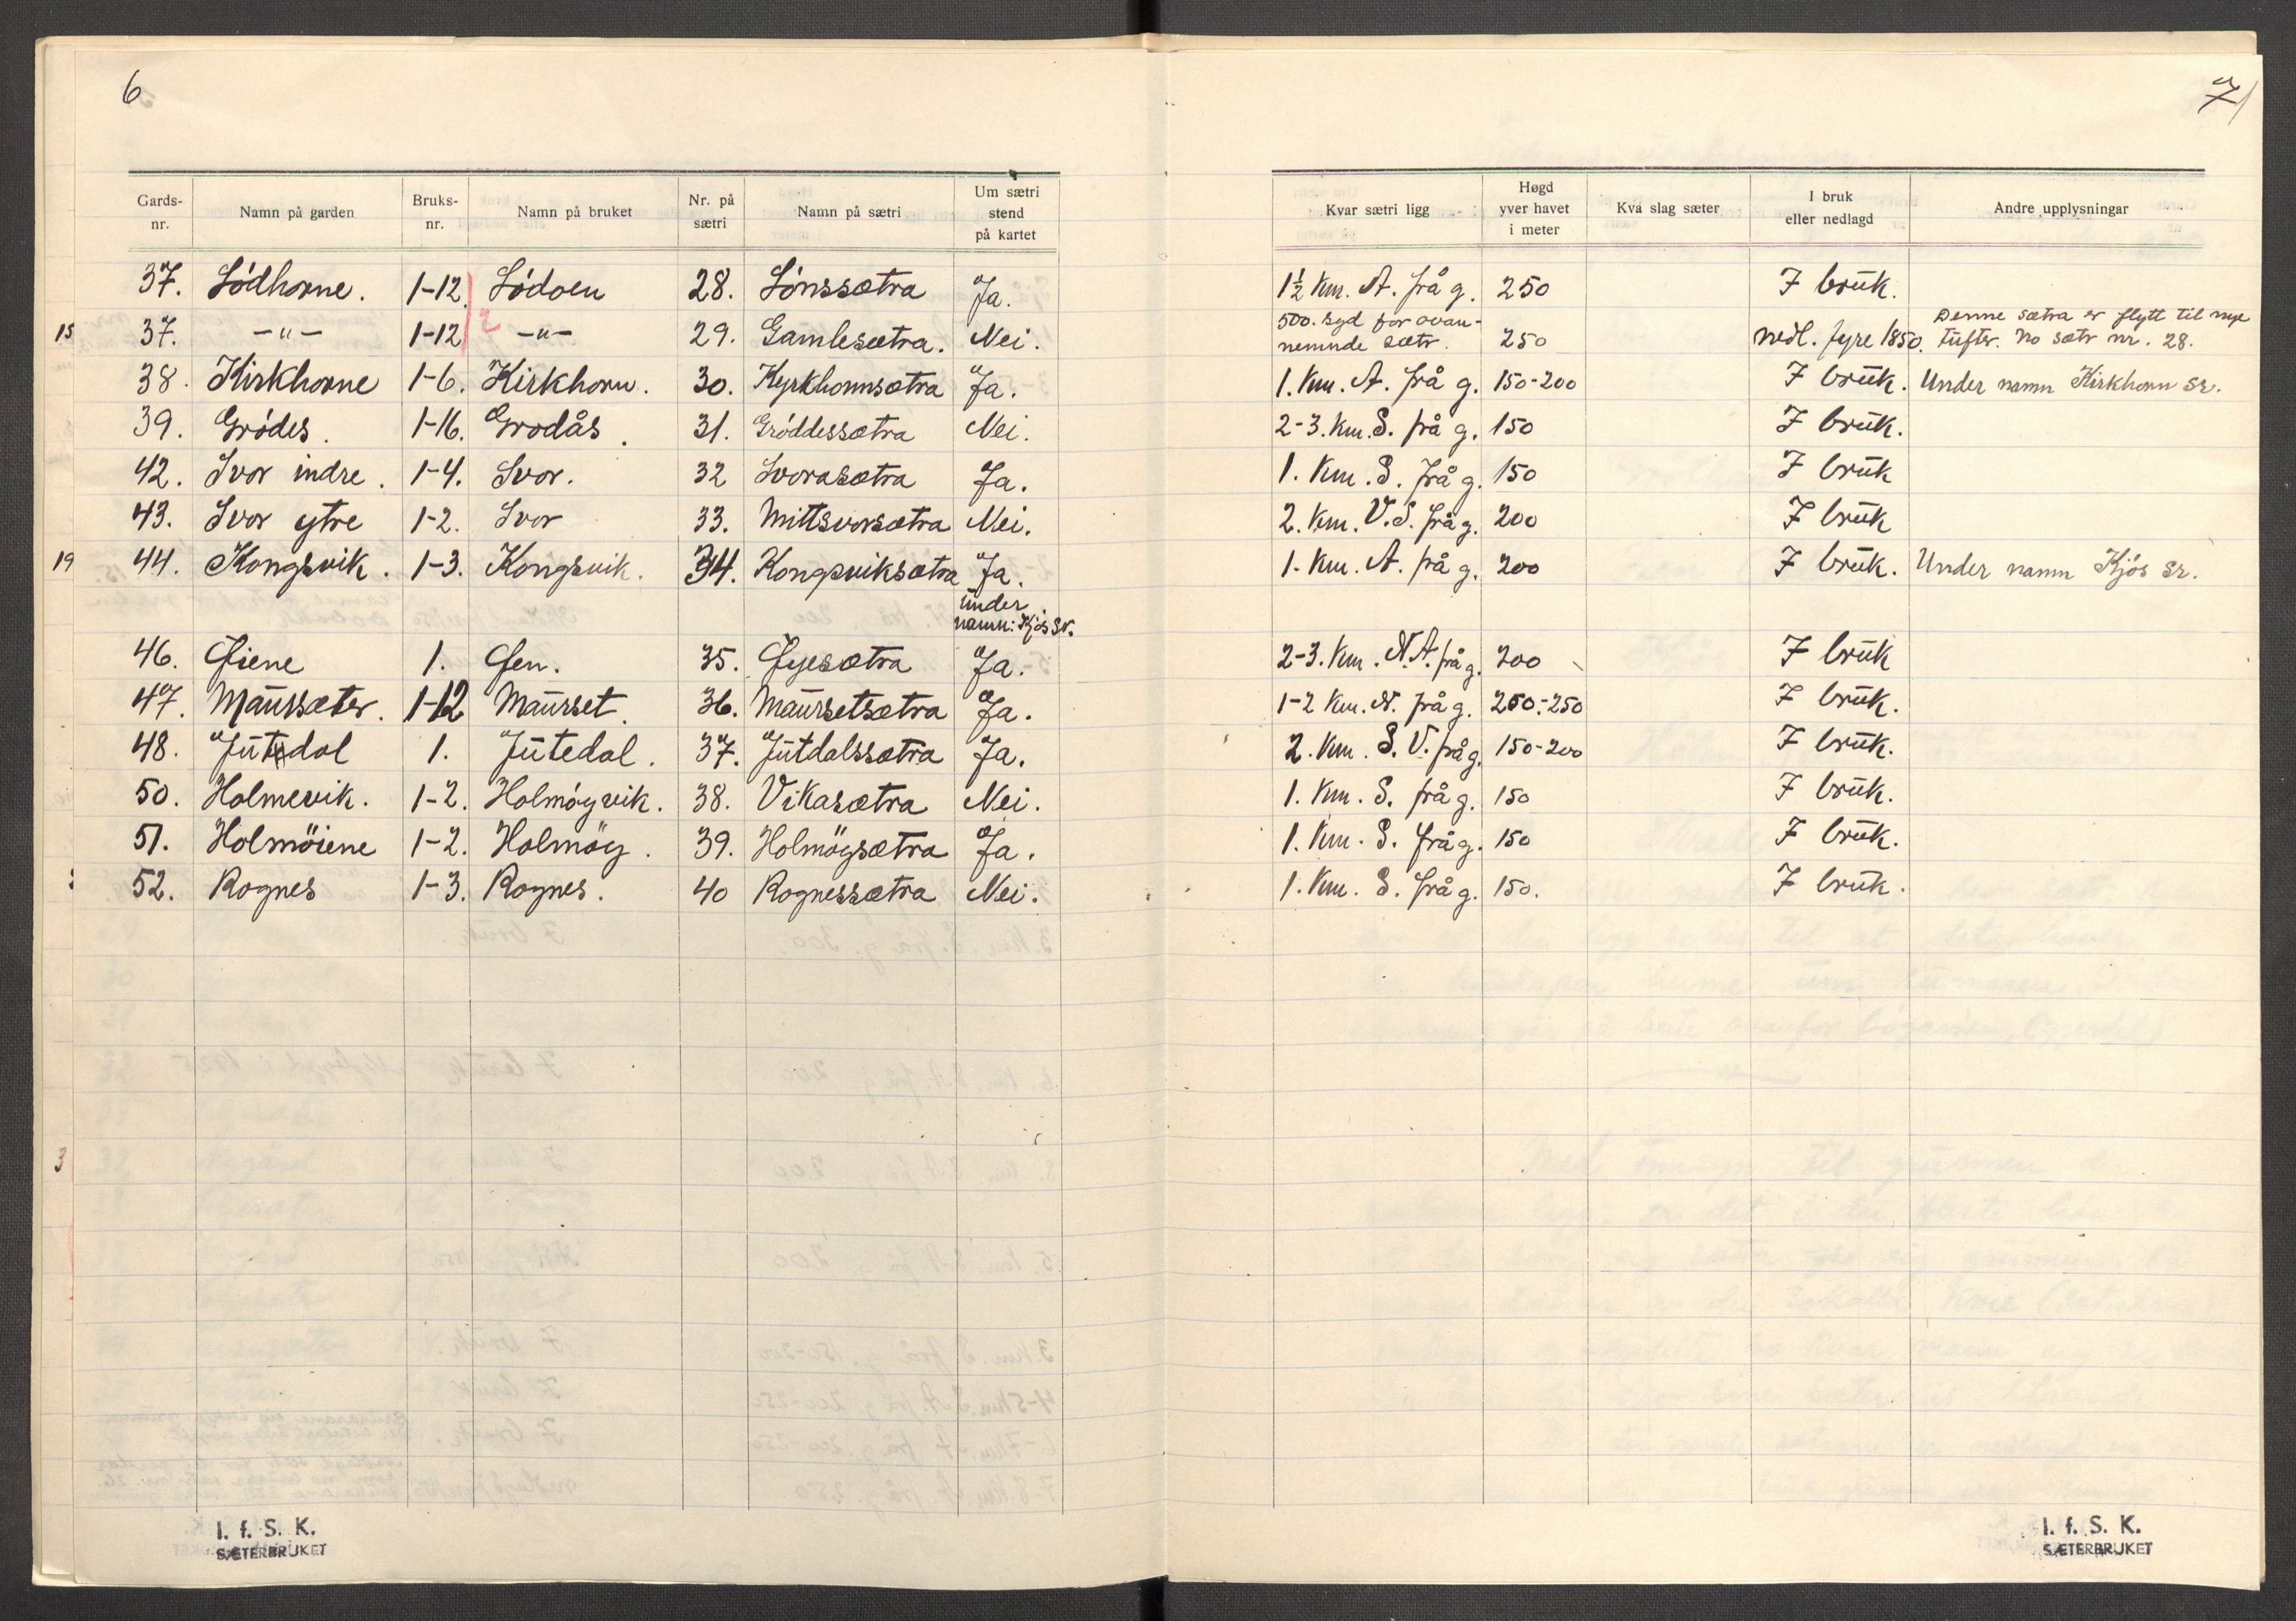 6
Gards-nr. Namn på garden Bruks-nr. Namn på bruket Nr. på sætri Namn på sætri Um sætri stend på kartet
37. Lödhorne. 1-12. Lödoen 28. Lönssætra Ja.
15 37. -"- 1-12 2 -"- 29. Gamlesætra. Nei.
38. Kirkhorne 1-6. Kirkhorn. 30. Kyrkhornsætra Ja.
39. Grödes. 1-16. Grodås. 31. Gröddessætra Nei.
42. Svor indre. 1-4. Svor. 32 Svorasætra Ja.
43. Svor ytre 1-2. Svor 33. Mittsvorsætra Nei.
19 44. Kongsvik. 1-3. Kongsvik. 34. Kongsviksætra Ja.
under
namn: Kjös sr.
46. Öiene 1. Öen. 35. Öyesætra Ja.
47. Maurssæter. 1-12 Maurset. 36. Maursetsætra Ja.
48. Jutedal 1. Jutedal. 37. Jutdalssætra Ja.
50. Holmevik. 1-2. Holmöyvik. 38. Vikasætra Nei.
51. Holmöiene 1-2. Holmöy. 39. Holmöysætra Ja.
52. Rognes 1-3. Rognes. 40 Rognessætra Nei.
3
I. f. S. K.
SÆTERBRUKET
7
Kvar sætri ligg Høgd yver havet i meter Kva slag sæter I bruk eller nedlagd Andre upplysningar
1½ km. A. frå g. 250 I bruk.
500. syd for ovan- Denne sætra er flytt til nye
nemnde sætr. 250 nedl. fyre 1850. tufter. No sætr nr. 28.
1. km. A. frå g. 150-200 I bruk. Under namn Kirkhorn sr.
2-3. km. S. frå g. 150 I bruk.
1. km. S. frå g. 150 I bruk
2. km. V.S. frå g. 200 I bruk
1. km. A. frå g. 200 I bruk. Under namn Kjös sr.
2-3. km. N.A. frå g. 200 I bruk
1-2 km. N. frå g. 200-250 I bruk.
2. km. S.V. frå g. 150-200 I bruk.
1. km. S. frå g. 150 I bruk.
1. km. S. frå g. 150 I bruk.
1. km. S. frå g. 150. I bruk.
I. f. S. K.
SÆTERBRUKET